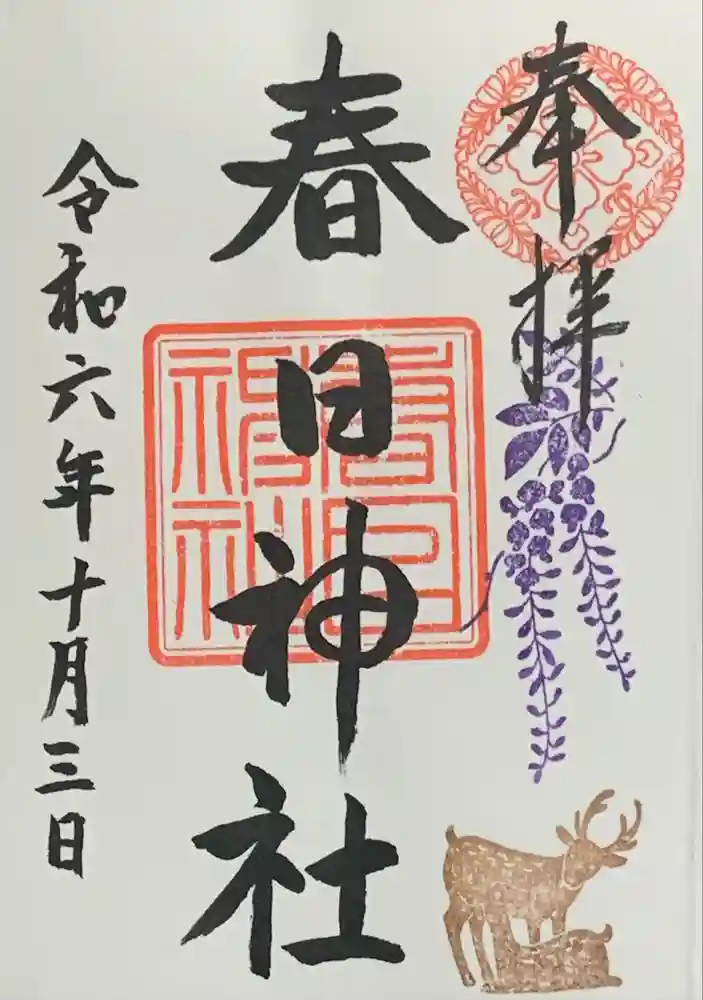 奉拝
春日神社
春日神社
令和六年十月三日